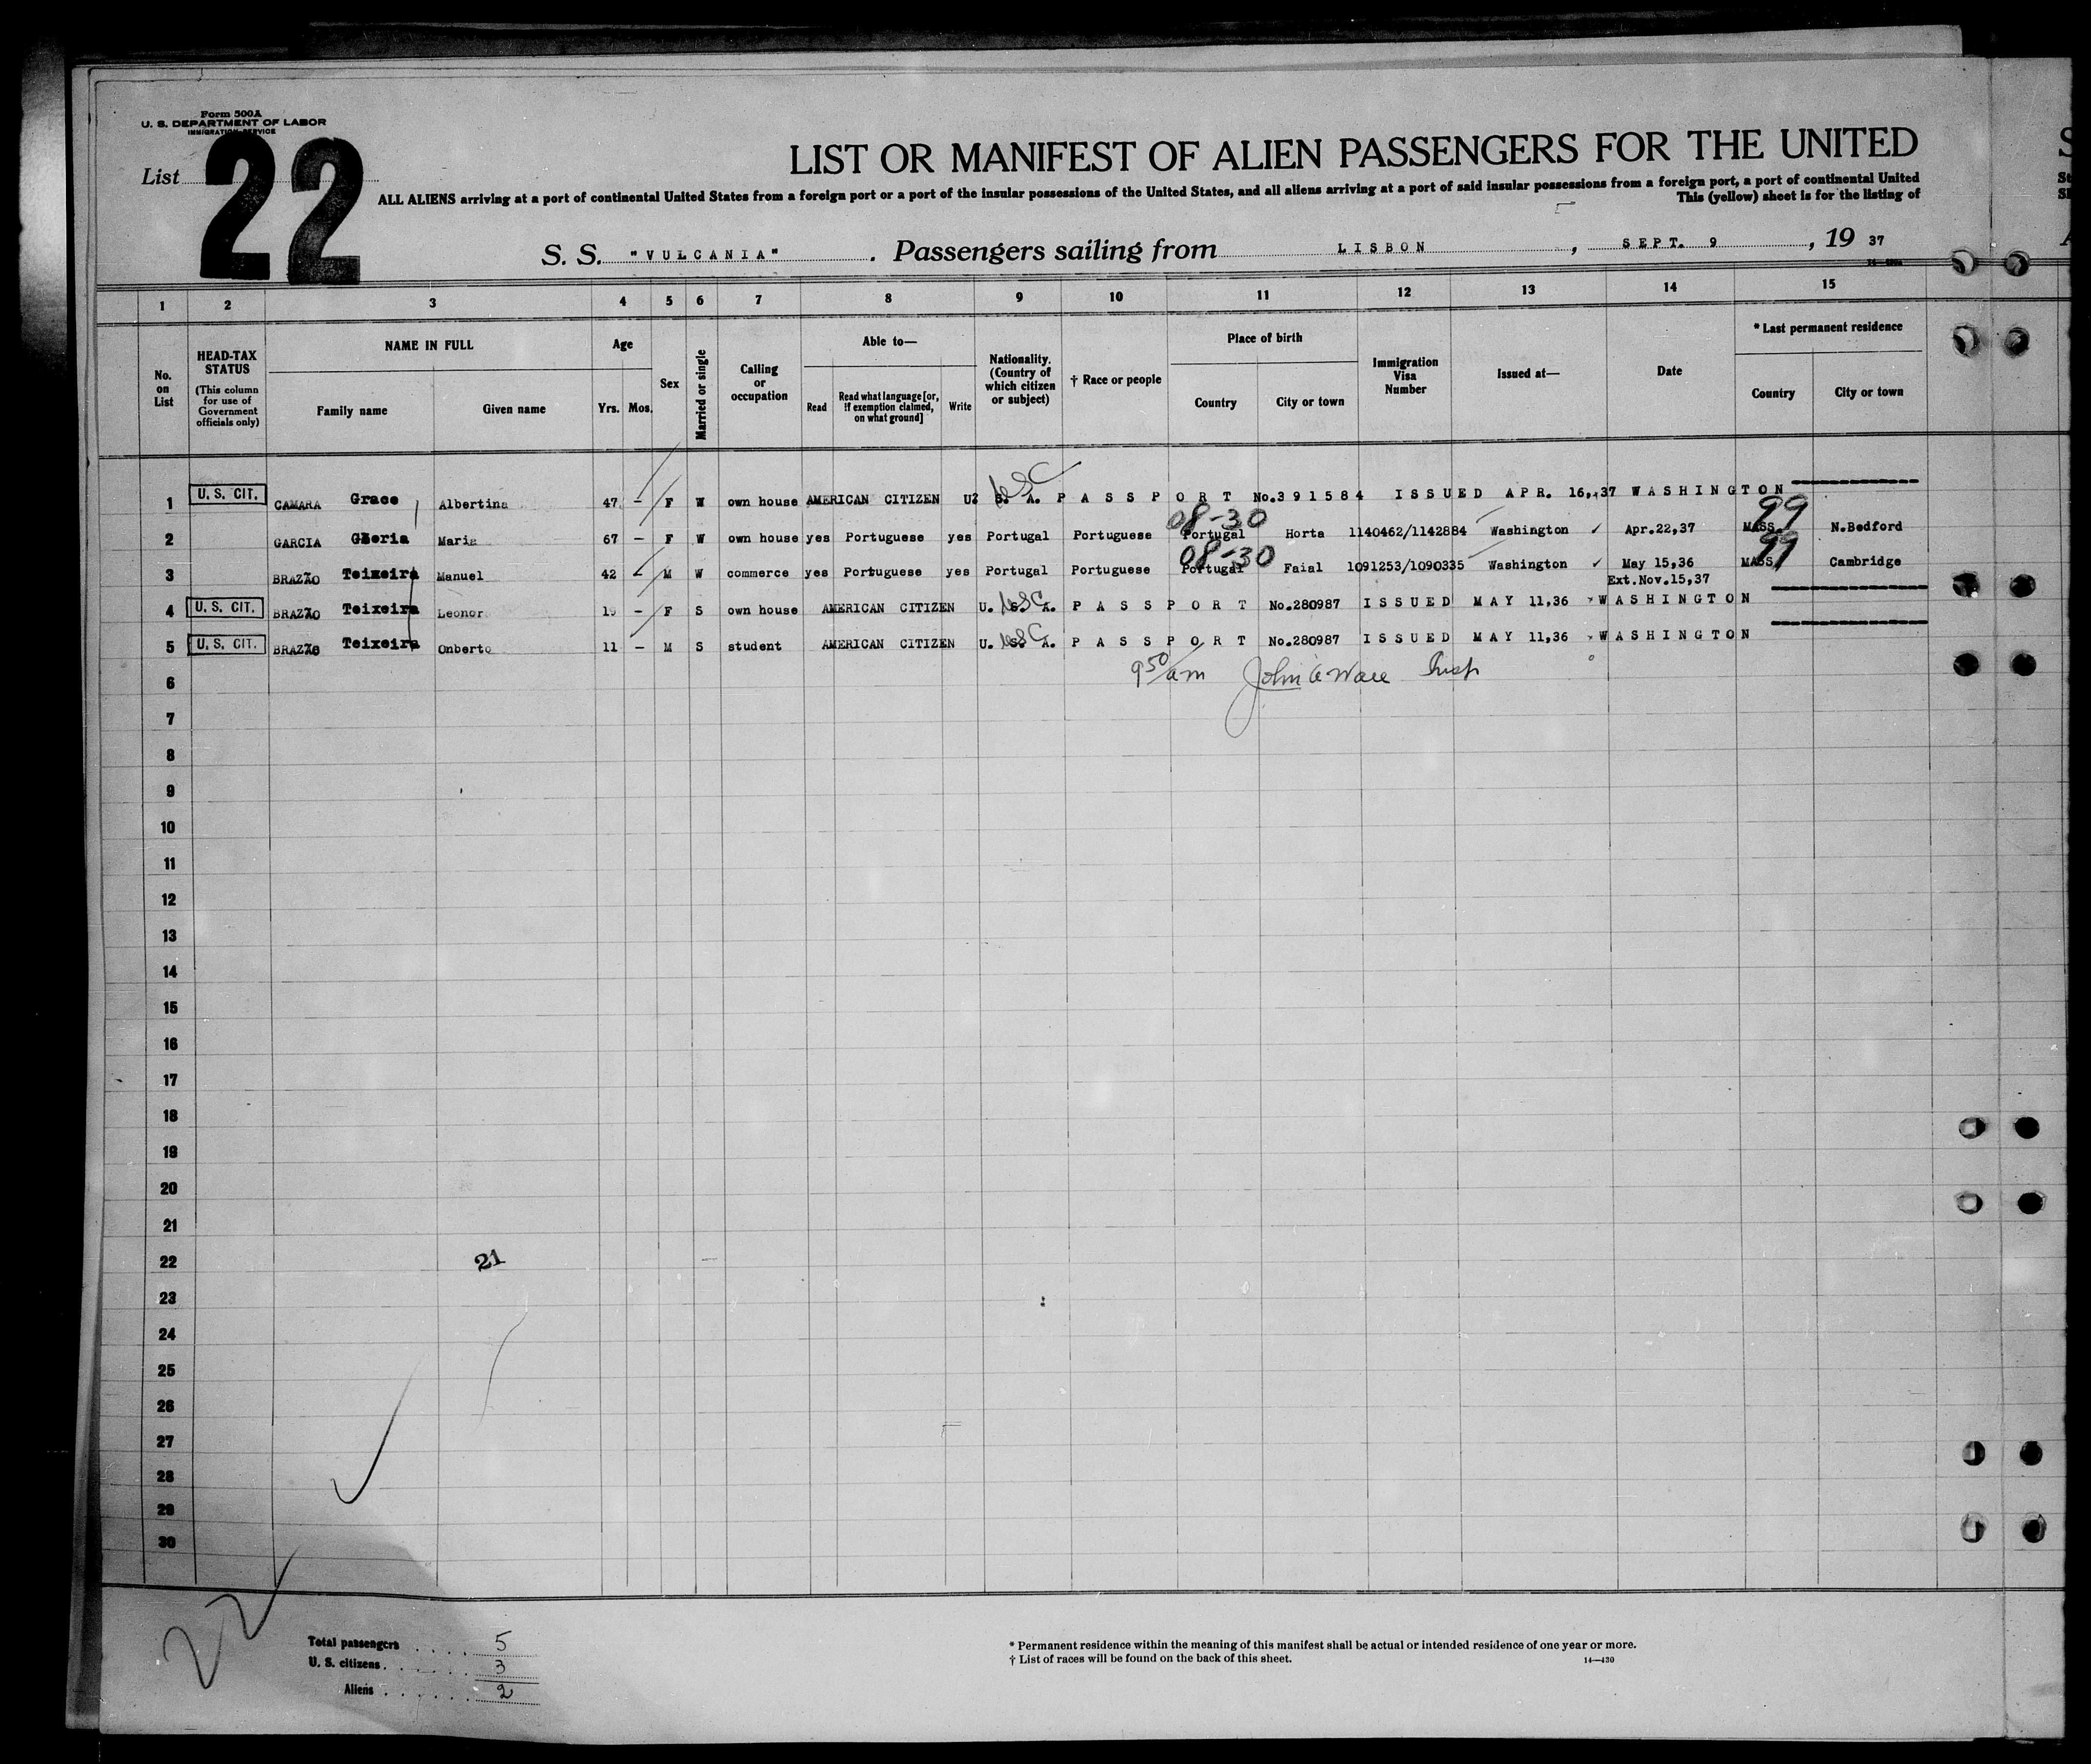 Form 500A
U. S. DEPARTMENT OF LABOR
IMMIGRATION SERVICE
List 22
LIST OR MANIFEST OF ALIEN PASSENGERS FOR THE UNITED
ALL ALIENS arriving at a port of continental United States from a foreign port or a port of the insular possessions of the United States, and all aliens arriving at a port of said insular possessions from a foreign port, a port of continental United
This (yellow) sheet is for the listing of
S. S. "VULCANIA". Passengers sailing from LISBON, SEPT. 9, 19 37
1 2 3 4 5 6 7 8 9 10 11 12 13 14 15
No. on List
HEAD-TAX STATUS (This column for use of Government officials only)
NAME IN FULL
Family name Given name
Age
Yrs. Mos.
Sex
Married or single
Calling or occupation
Able to—
Read Read what language [or, if exemption claimed, on what ground] Write
Nationality. (Country of which citizen or subject)
† Race or people
Place of birth
Country City or town
Immigration Visa Number
Issued at—
Date
* Last permanent residence
Country City or town
1 U. S. CIT. CAMARA Grace Albertina 47 – F W own house AMERICAN CITIZEN U? S. A. PASSPORT No.391584 ISSUED APR. 16, 37 WASHINGTON
08-30 99
2 GARCIA Maria 67 – F W own house yes Portuguese yes Portugal Portuguese Portugal Horta 1140462/1142884 Washington ✓ Apr.22,37 MASS. N.Bedford
08-30 99
3 BRAZÃO Teixeira Manuel 42 – M W commerce yes Portuguese yes Portugal Portuguese Portugal Faial 1091253/1090335 Washington ✓ May 15,36 MASS. Cambridge
Ext.Nov.15,37
4 U. S. CIT. BRAZÃO Teixeira Leonor 19 – F S own house AMERICAN CITIZEN U. S. A. PASSPORT No.280987 ISSUED MAY 11,36 WASHINGTON
5 U. S. CIT. BRAZÃO Teixeira Onberto 11 – M S student AMERICAN CITIZEN U. S. A. PASSPORT No.280987 ISSUED MAY 11,36 WASHINGTON
6 9 50/am John A Ware Insp
7
8
9
10
11
12
13
14
15
16
17
18
19
20
21
22 21
23
24
25
26
27
28
29
30
22
Total passengers . . . . 5
U. S. citizens . . . . . 3
Aliens . . . . . . 2
* Permanent residence within the meaning of this manifest shall be actual or intended residence of one year or more.
† List of races will be found on the back of this sheet. 14—430